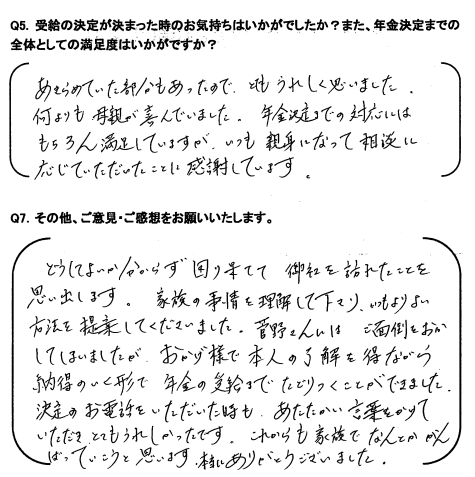 Q5. 受給の決定が決まった時のお気持ちはいかがでしたか？また、年金決定までの
全体としての満足度はいかがですか？
あきらめていた部分もあったので、とてもうれしく思いました。
何よりも母親が喜んでいました。年金決定までの対応には
もちろん満足していますが、いつも親身になって相談に
応じていただいたことに感謝しています。
Q7. その他、ご意見・ご感想をお願いいたします。
どうしてよいか分からず困り果てて御社を訪れたことを
思い出します。家族の事情を理解して下さり、いつもよりよい
方法を提案してくださいました。菅野さんには ご面倒をおか
してしまいましたが、おかげ様で本人の了解を得ながら
納得のいく形で年金の受給までたどりつくことができました。
決定のお電話をいただいた時も、あたたかい言葉をかけて
いただき、とてもうれしかったです。これからも家族でなんとかがん
ばっていこうと思います。本当にありがとうございました。